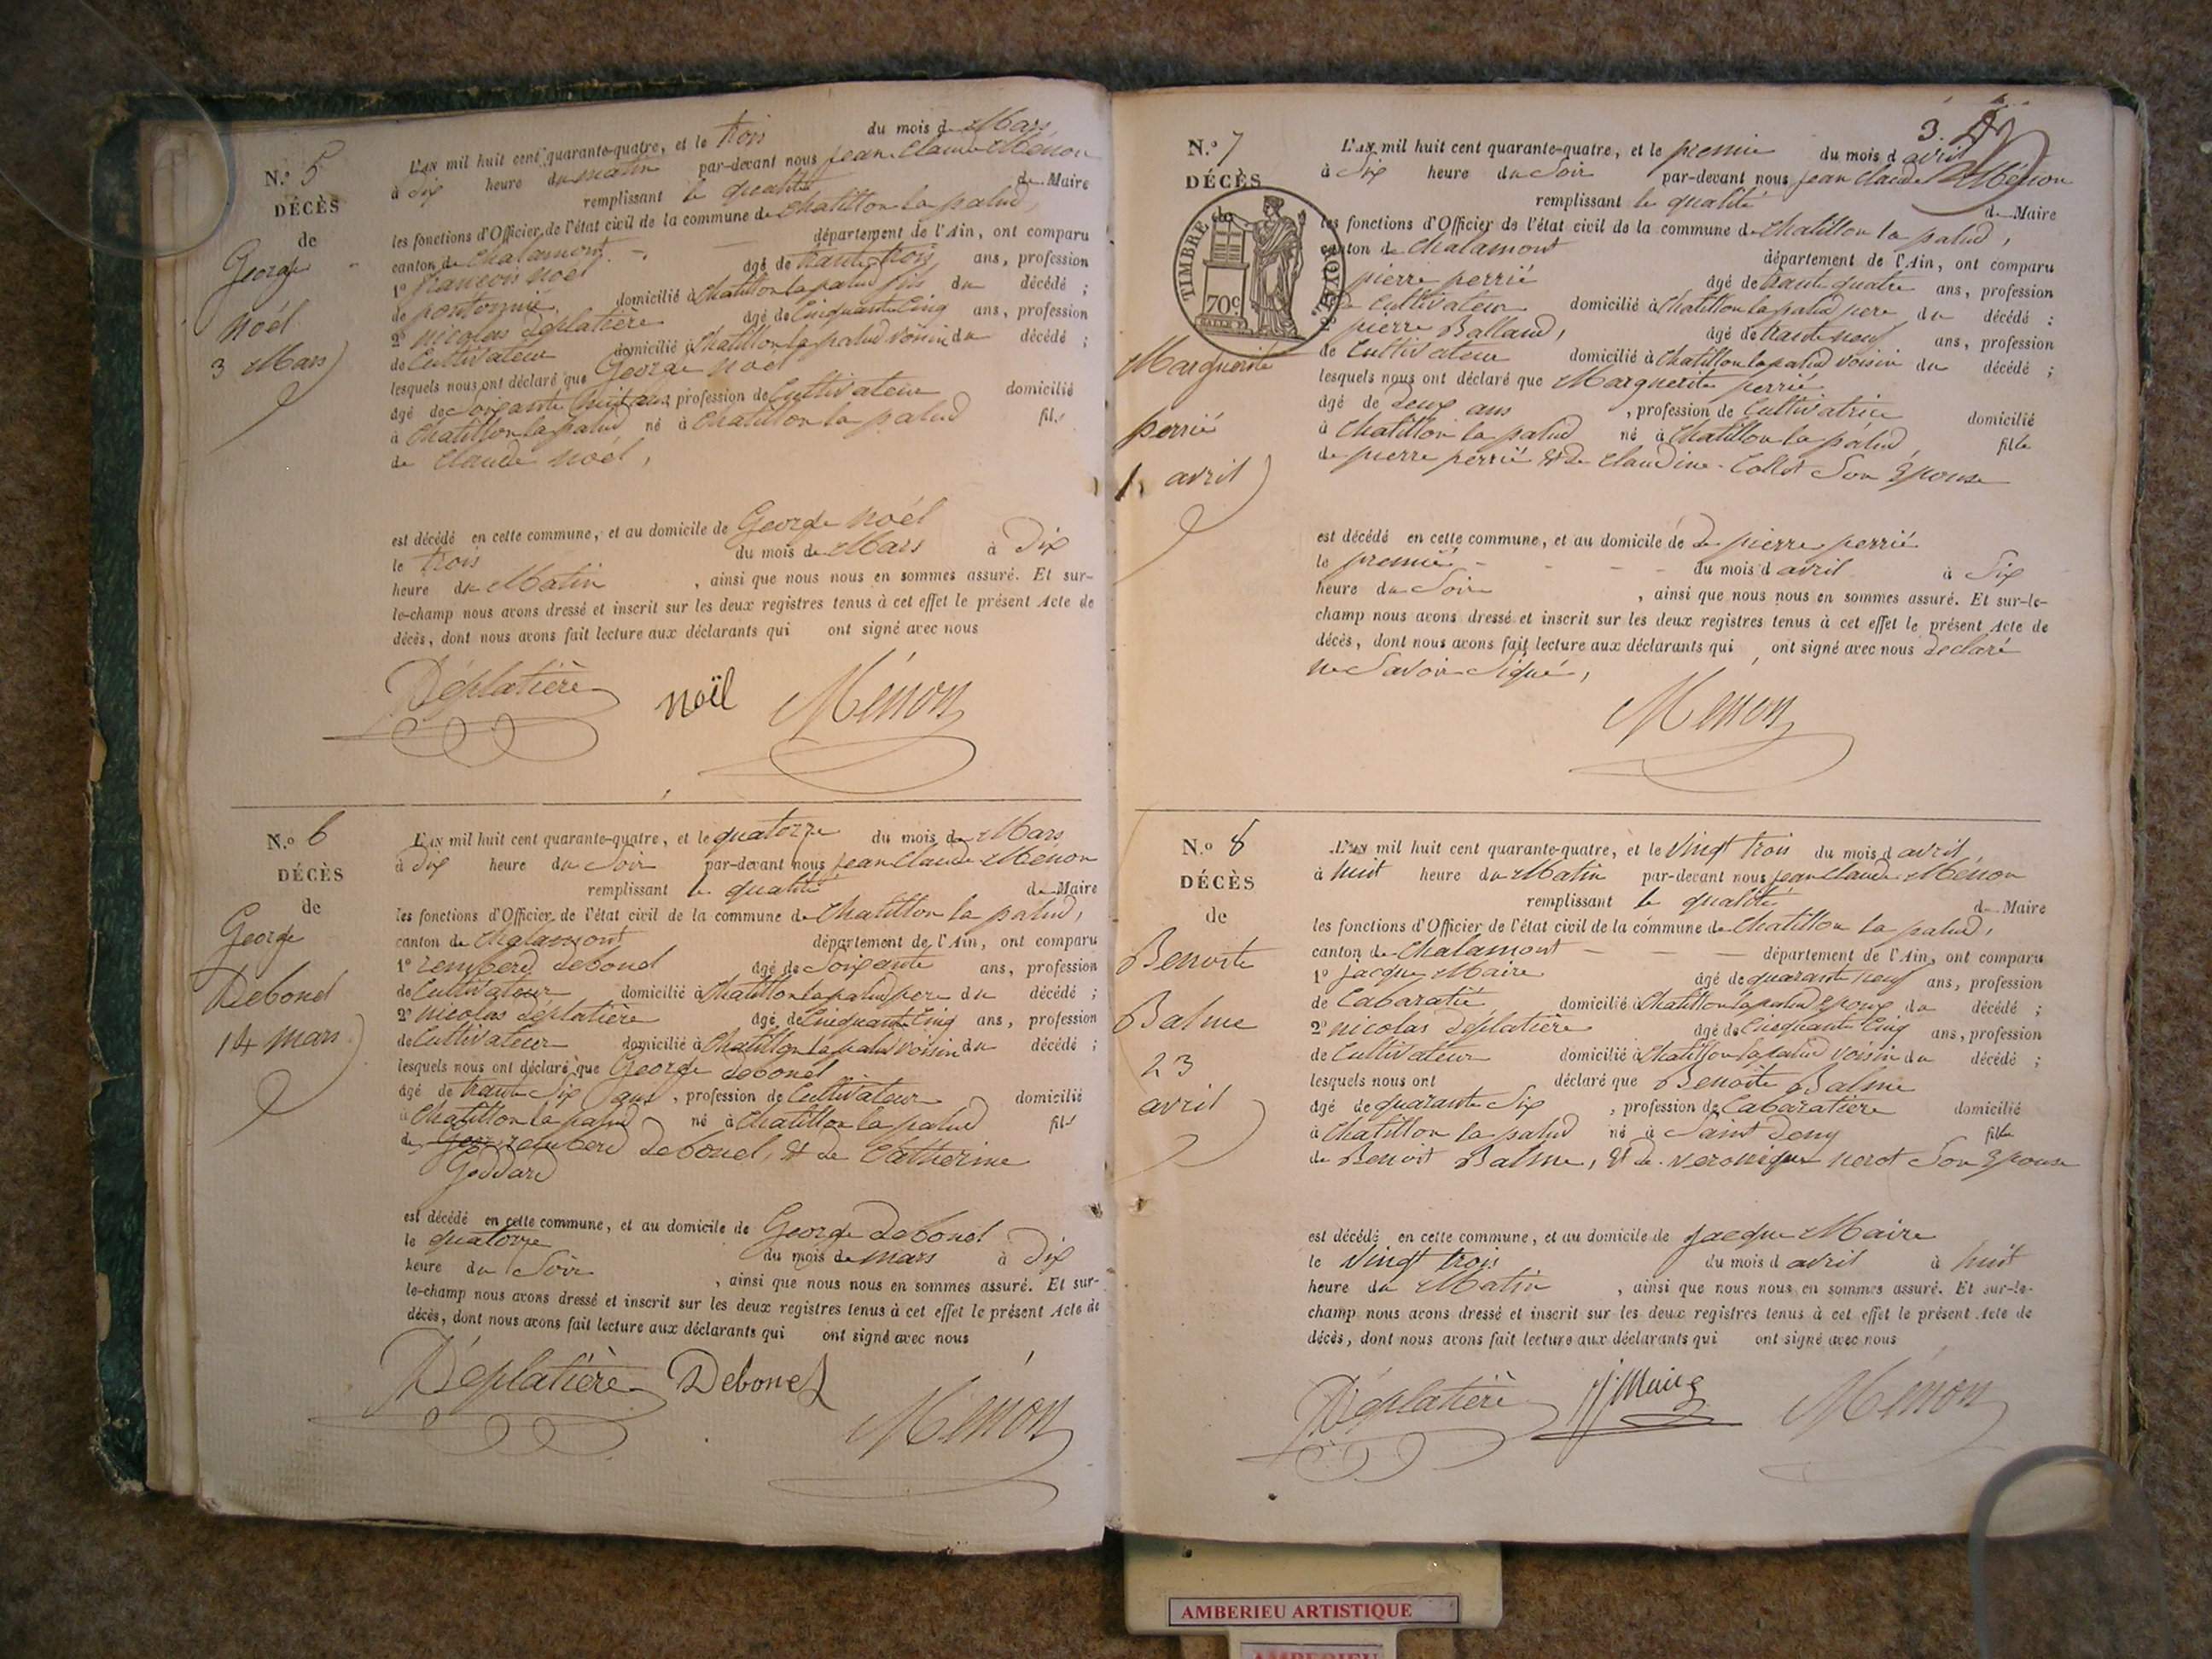 N.º 5
DÉCÈS
de
George
noël
3 Mars
L'an mil huit cent quarante-quatre, et le trois du mois de Mars
à dix heure du matin par-devant nous jean Claude Ménon
remplissant la qualité de Maire
les fonctions d'Officier de l'état civil de la commune de Chatillon la palud,
canton de Chalamont département de l'Ain, ont comparu
1º francois noël âgé de trante trois ans, profession
de domicilié à Chatillon la palud fils du décédé ;
2º nicolas Déplatière âgé de Cinquante Cinq ans, profession
de Cultivateur domicilié à Chatillon la palud voisin du décédé ;
lesquels nous ont déclaré que George noël
âgé de Soixante huit ans, profession de Cultivateur domicilié
à Chatillon la palud né à Chatillon la palud fils
de Claude noël,
est décédé en cette commune, et au domicile de George noël
le trois du mois de Mars à Dix
heure du Matin, ainsi que nous nous en sommes assuré. Et sur-
le-champ nous avons dressé et inscrit sur les deux registres tenus à cet effet le présent Acte de
décès, dont nous avons fait lecture aux déclarants qui ont signé avec nous
Déplatière noël Ménon
N.º 6
DÉCÈS
de
George
Debonel
14 mars
L'an mil huit cent quarante-quatre, et le quatorze du mois de Mars
à dix heure du Soir par-devant nous jean Claude Ménon
remplissant la qualité de Maire
les fonctions d'Officier de l'état civil de la commune de Chatillon la palud,
canton de Chalamont département de l'Ain, ont comparu
1º remberd debonel âgé de Soixante ans, profession
de Cultivateur domicilié à Chatillon la palud pere du décédé ;
2º nicolas Déplatière âgé de Cinquante Cinq ans, profession
de Cultivateur domicilié à Chatillon la palud voisin du décédé ;
lesquels nous ont déclaré que George debonel
âgé de trante Six ans, profession de Cultivateur domicilié
à Chatillon la palud né à Chatillon la palud fils
de remberd debonel, & de Catherine
Goddard
est décédé en cette commune, et au domicile de George debonel
le quatorze du mois de mars à Dix
heure du Soir, ainsi que nous nous en sommes assuré. Et sur-
le-champ nous avons dressé et inscrit sur les deux registres tenus à cet effet le présent Acte de
décès, dont nous avons fait lecture aux déclarants qui ont signé avec nous
Déplatière Debonel Ménon
3.
N.º 7
DÉCÈS
TIMBRE ROYAL
70c
Marguerite
perrié
1, avril
L'an mil huit cent quarante-quatre, et le premier du mois d avril
à Six heure du Soir par-devant nous jean Claude Ménon
remplissant la qualité de Maire
les fonctions d'Officier de l'état civil de la commune de Chatillon la palud,
canton de Chalamont département de l'Ain, ont comparu
pierre perrié âgé de trante quatre ans, profession
de Cultivateur domicilié à Chatillon la palud pere du décédé ;
pierre Balland, âgé de trante neuf ans, profession
de Cultivateur domicilié à Chatillon la palud voisin du décédé ;
lesquels nous ont déclaré que Marguerite perrié
âgé de Deux ans, profession de Cultivatrice domicilié
à Chatillon la palud né à Chatillon la palud fille
de pierre perrié & de Claudine Collet Son Epouse
est décédé en cette commune, et au domicile de de pierre perrié
le premié du mois d avril à Six
heure du Soir, ainsi que nous nous en sommes assuré. Et sur-le-
champ nous avons dressé et inscrit sur les deux registres tenus à cet effet le présent Acte de
décès, dont nous avons fait lecture aux déclarants qui ont signé avec nous declaré
ne Savoir Signé,
Ménon
N.º 8
DÉCÈS
de
Benoite
Balme
23
avril
L'an mil huit cent quarante-quatre, et le vingt trois du mois d avril
à huit heure du Matin par-devant nous jean Claude Ménon
remplissant la qualité de Maire
les fonctions d'Officier de l'état civil de la commune de Chatillon la palud,
canton de Chalamont département de l'Ain, ont comparu
1º jacque Maire âgé de quarante neuf ans, profession
de Cabaratié domicilié à Chatillon la palud Epoux du décédé ;
2º nicolas Déplatière âgé de Cinquante Cinq ans, profession
de Cultivateur domicilié à Chatillon la palud voisin du décédé ;
lesquels nous ont déclaré que Benoite Balme
âgé de quarante Six, profession de Cabaratière domicilié
à Chatillon la palud né à Saint Deny fille
de Benoit Balme, & de veronique nerot Son Epouse
est décédé en cette commune, et au domicile de jacque Maire
le vingt trois du mois d avril à huit
heure du Matin, ainsi que nous nous en sommes assuré. Et sur-le-
champ nous avons dressé et inscrit sur les deux registres tenus à cet effet le présent Acte de
décès, dont nous avons fait lecture aux déclarants qui ont signé avec nous
Déplatière j. Maire Ménon
AMBERIEU ARTISTIQUE
AMBERIEU